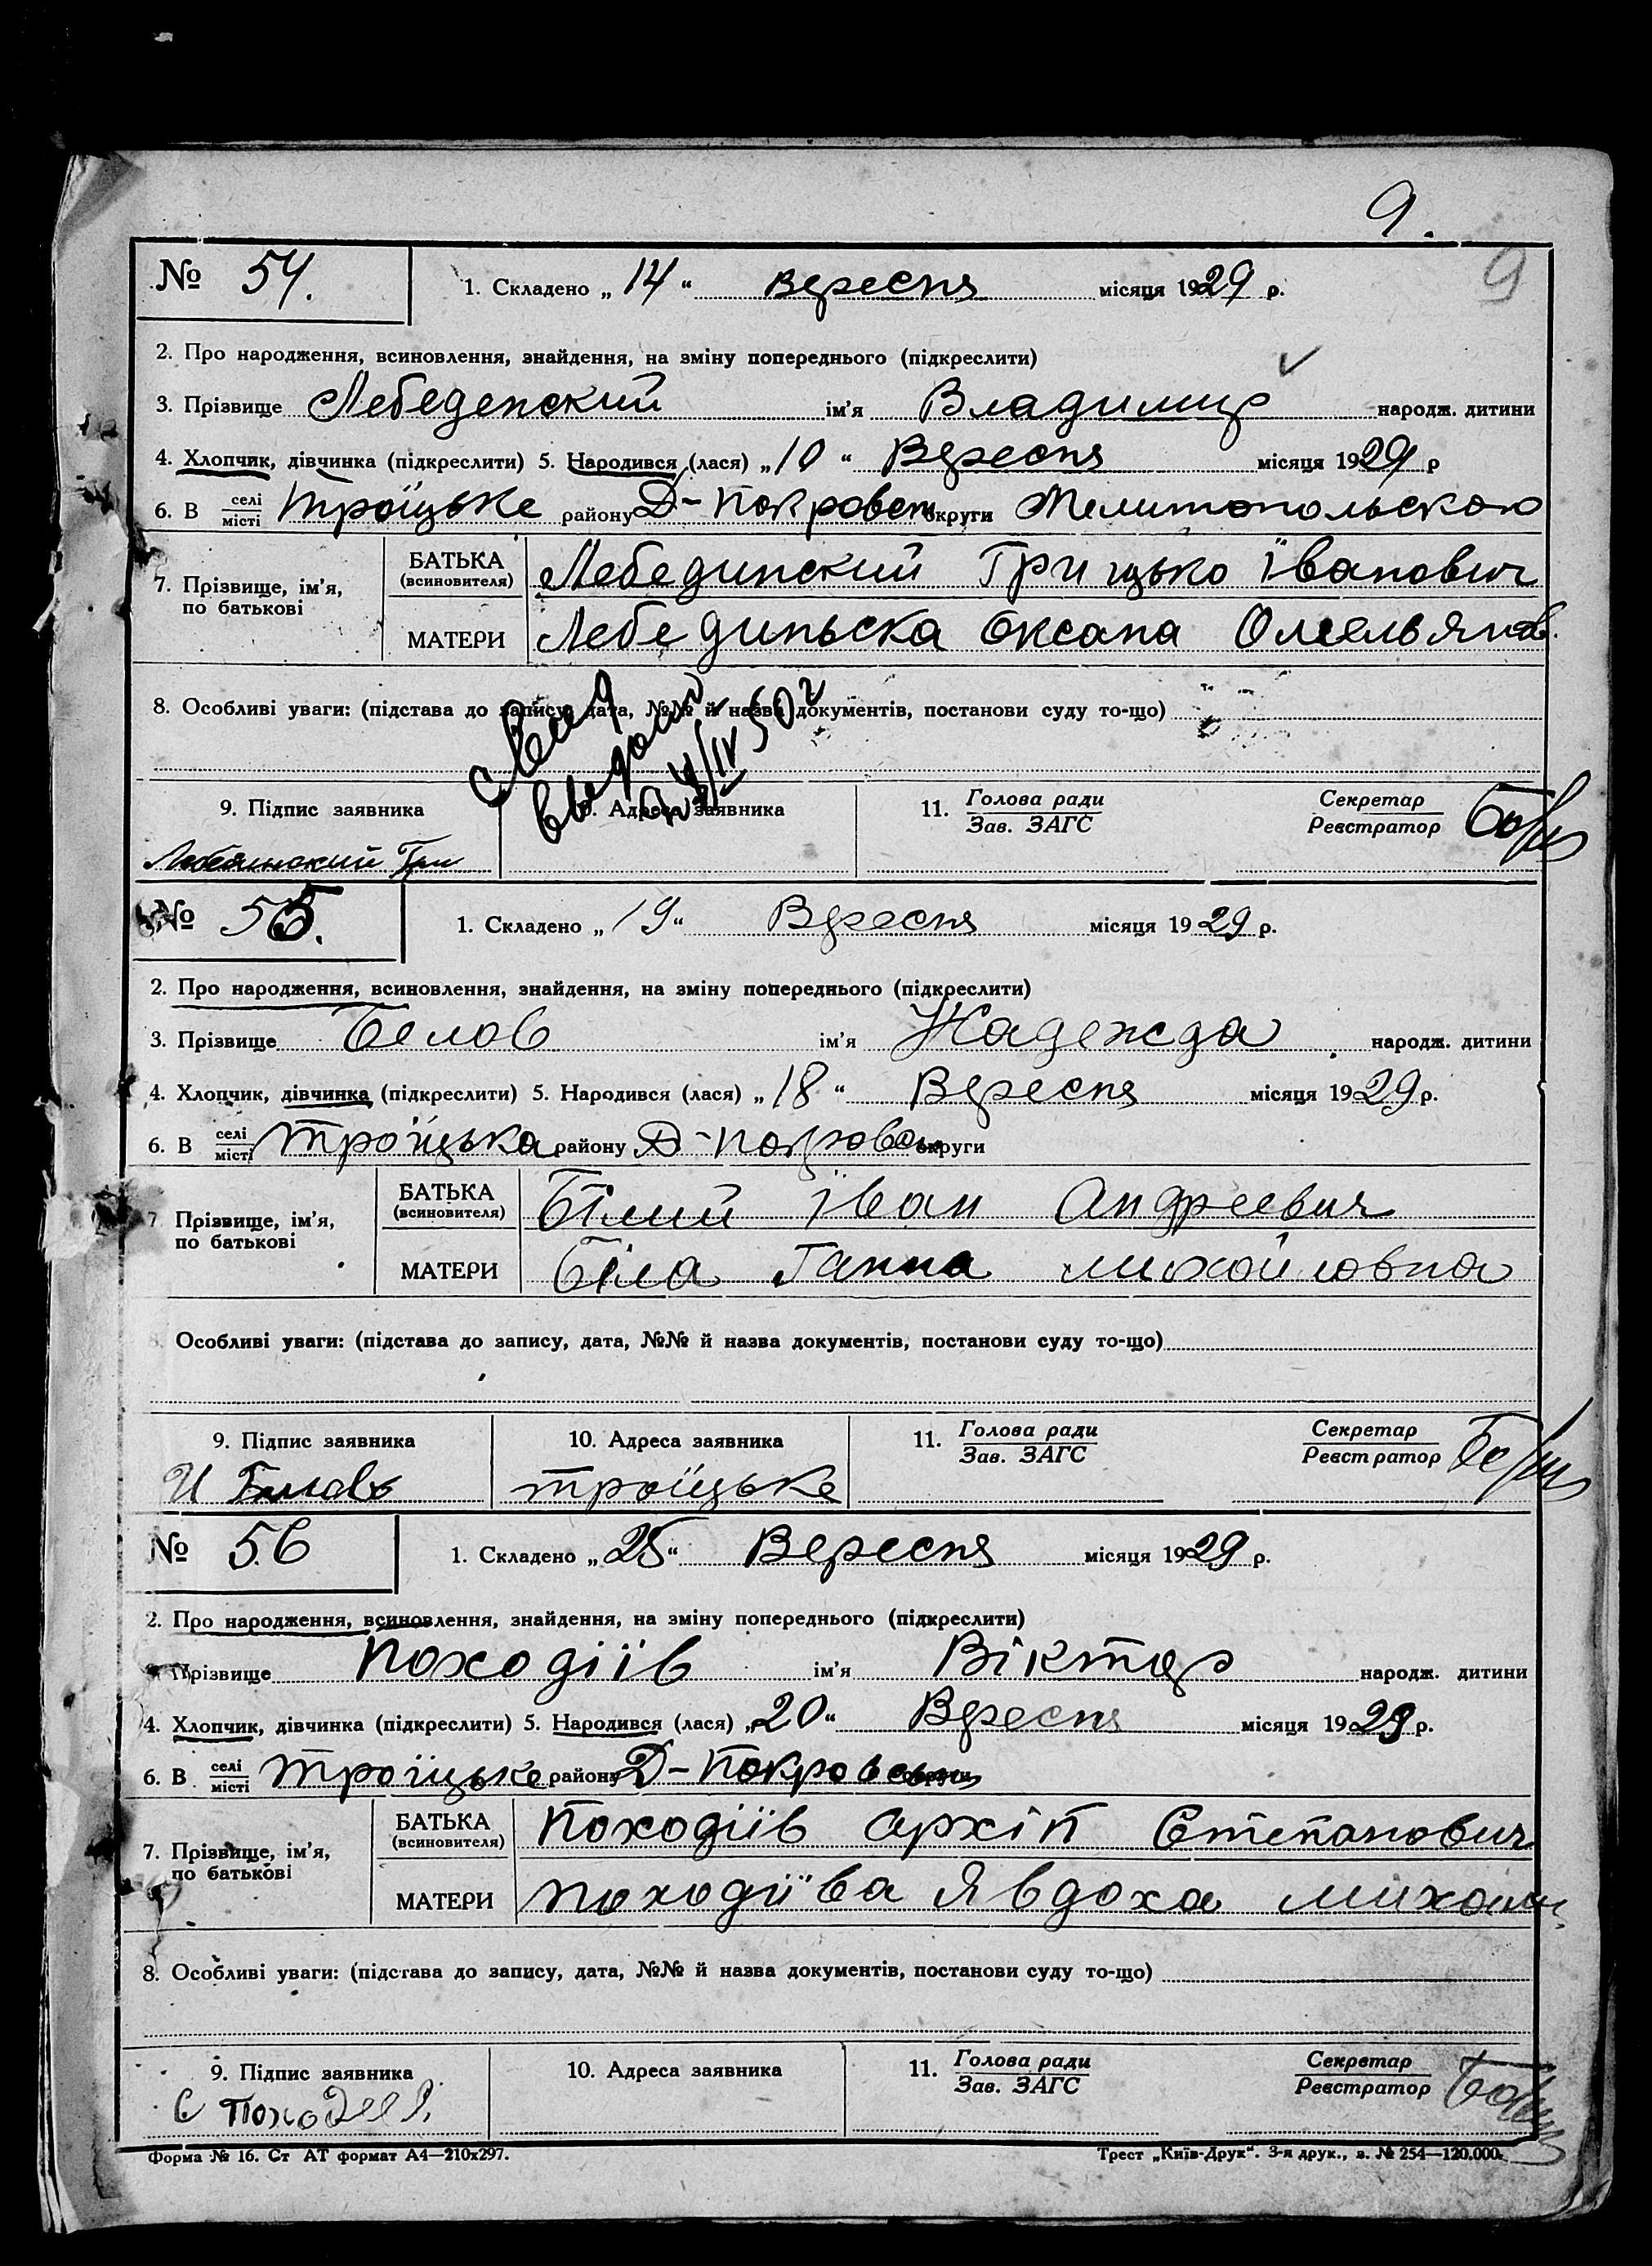 9.
9
№ 54. 1. Складено „14“ Вересня місяця 1929 р.
2. Про народження, всиновлення, знайдення, на зміну попереднього (підкреслити)
3. Прізвище Лебеденский ім’я Владимир народж. дитини
4. Хлопчик, дівчинка (підкреслити) 5. Народився (лася) „10“ Вересня місяця 1929 р
6. В селі місті Троїцьке району Д-Покровськ округи Мелитопольскою
7. Прізвище, ім’я, по батькові БАТЬКА (всиновителя) Лебединский Грицько Іванович
МАТЕРИ Лебединьска Оксана Омельянов.
8. Особливі уваги: (підстава до запису, дата, №№ й назва документів, постанови суду то-що)
9. Підпис заявника 10. Адреса заявника 11. Голова ради Зав. ЗАГС Секретар Реєстратор
№ 55. 1. Складено „19“ Вересня місяця 1929 р.
2. Про народження, всиновлення, знайдення, на зміну попереднього (підкреслити)
3. Прізвище Белов ім’я Надежда народж. дитини
4. Хлопчик, дівчинка (підкреслити) 5. Народився (лася) „18“ Вересня місяця 1929 р.
6. В селі місті Троїцька району Д-Покровськ округи
7 Прізвище, ім’я, по батькові БАТЬКА (всиновителя) Білий Іван Андреевич
МАТЕРИ Біла Ганна Михайловна
8. Особливі уваги: (підстава до запису, дата, №№ й назва документів, постанови суду то-що)
9. Підпис заявника 10. Адреса заявника 11. Голова ради Зав. ЗАГС Секретар Реєстратор
И Билов Троїцьке
№ 56 1. Складено „25“ Вересня місяця 1929 р.
2. Про народження, всиновлення, знайдення, на зміну попереднього (підкреслити)
Прізвище Походіїв ім’я Віктор народж. дитини
4. Хлопчик, дівчинка (підкреслити) 5. Народився (лася) „20“ Вересня місяця 1929 р.
6. В селі місті Троїцьке району Д-Покровськ
7. Прізвище, ім’я, по батькові БАТЬКА (всиновителя) Походіїв Архіп Степанович
МАТЕРИ Походіїва Явдоха
8. Особливі уваги: (підстава до запису, дата, №№ й назва документів, постанови суду то-що)
9. Підпис заявника 10. Адреса заявника 11. Голова ради Зав. ЗАГС Секретар Реєстратор
Форма № 16. Ст АТ формат А4—210х297. Трест „Київ-Друк“. 3-я друк., в. № 254—120.000.